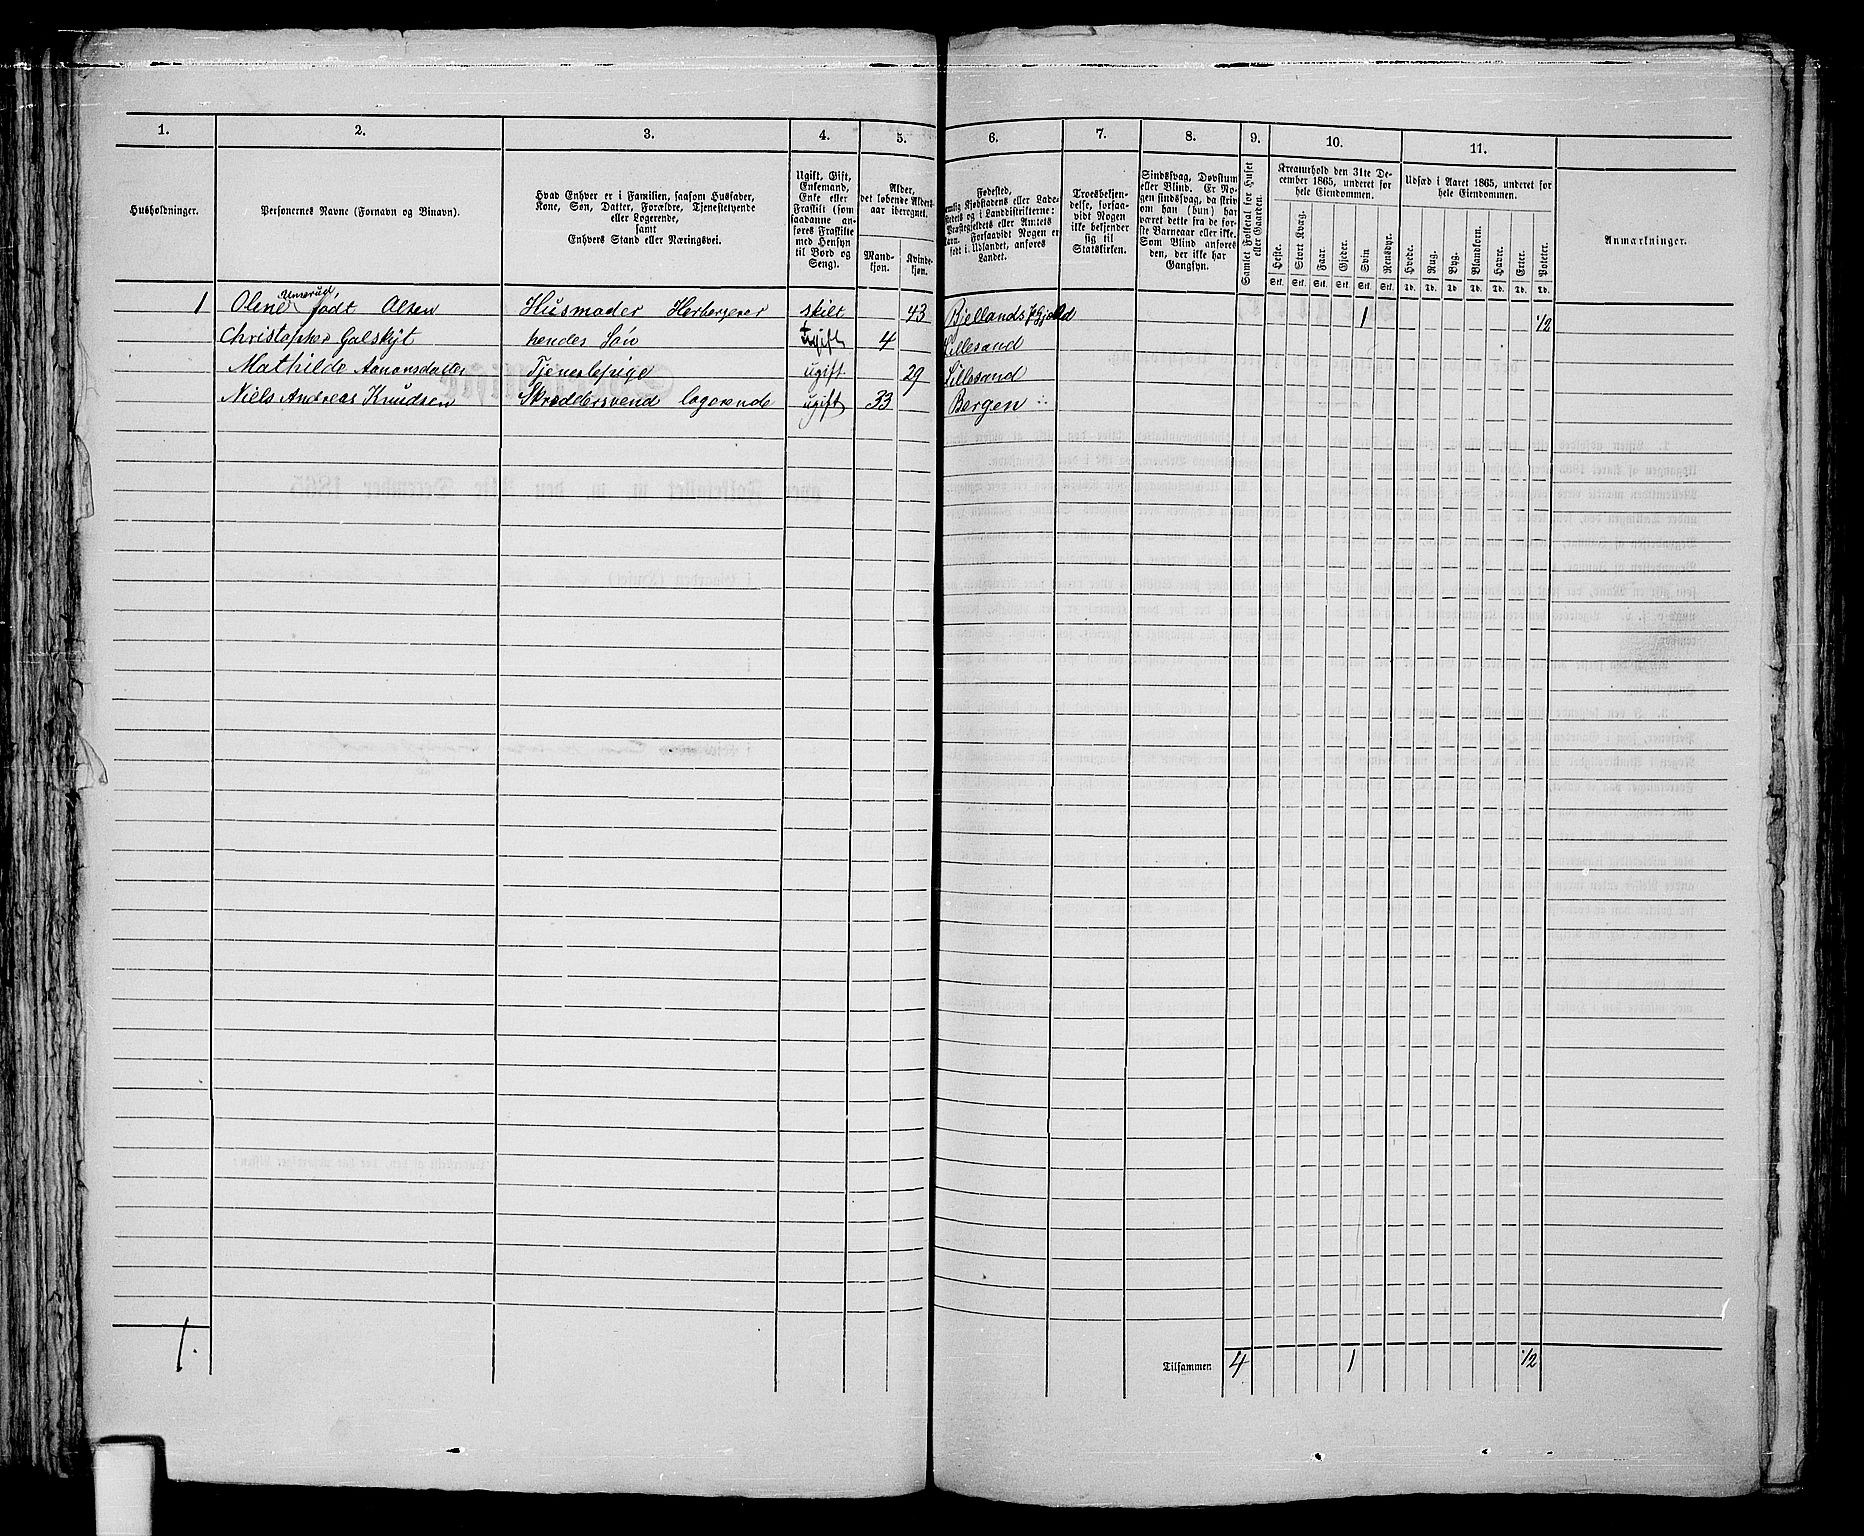 1. 2. 3. 4. 5. 6. 7. 8. 9. 10. 11.
Husholdninger.
Personernes Navne (Fornavn og Binavn).
Hvad Enhver er i Familien, saasom Husfader,
Kone, Søn, Datter, Forældre, Tjenestetyende
eller Logerende,
samt
Enhvers Stand eller Næringsvei.
Ugift, Gift,
Enkemand,
Enke eller
Fraskilt (som
saadanne an-
føres Fraskilte
med Hensyn
til Bord og
Seng).
Alder,
det løbende Alders-
aar iberegnet.
Mand-
kjøn.
Kvinde-
kjøn.
Fødested,
Kjøbstadens eller Lade-
Præstegjeldets eller Amtets
Navn. Forsaavidt Nogen er
født i Udlandet, anføres
Landet.
Troesbekjen-
delse, forsaa-
vidt Nogen
ikke bekjender
sig til
Statskirken.
Sindssvag, Døvstum
eller Blind. Er No-
gen sindssvag, da skriv
om han (hun) har
været dette fra de før-
ste Barneaar eller ikke.
Som Blind anføres
den, der ikke har
Gangsyn.
Samlet Folketal for Huset
eller Gaarden.
Kreaturhold den 31te De-
cember 1865, underet for
hele Eiendommen.
Heste. Stort Kvæg. Faar. Gjeder. Svin Rensdyr.
Stk. Stk. Stk. Stk. Stk. Stk.
Udsæd i Aaret 1865, underet for
hele Eiendommen.
Hvede. Rug. Byg. Blandkorn. Havre. Erter. Poteter.
Td. Td. Td. Td. Td. Td. Td.
Anmærkninger.
1 Olene født Olsen Husmoder Herbergerer skilt 43 Bjellands 1 1/2
Christopher hendes Søn ugift 4 Lillesand
Mathilde Aanonsdatter Tjenestepige ugift 29 Lillesand
Niels Andreas Knudsen Skræddersvend logerende ugift 33 Bergen
1. Tilsammen 4 1 1/2